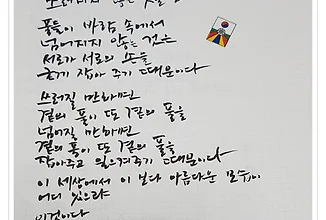 쓰러지지 않는
풀들이 바람 속에서
넘어지지 않는 것은
서로가 서로의 손을
굳게 잡아 주기 때문이다
쓰러질 만하면
곁의 풀이 또 곁의 풀을
넘어질 만하면
곁의 풀이 또 곁의 풀을
잡아주고 일으켜주기 때문이다
이 세상에서 이 보다 아름다운 모습이
어디 있으랴
이것이다